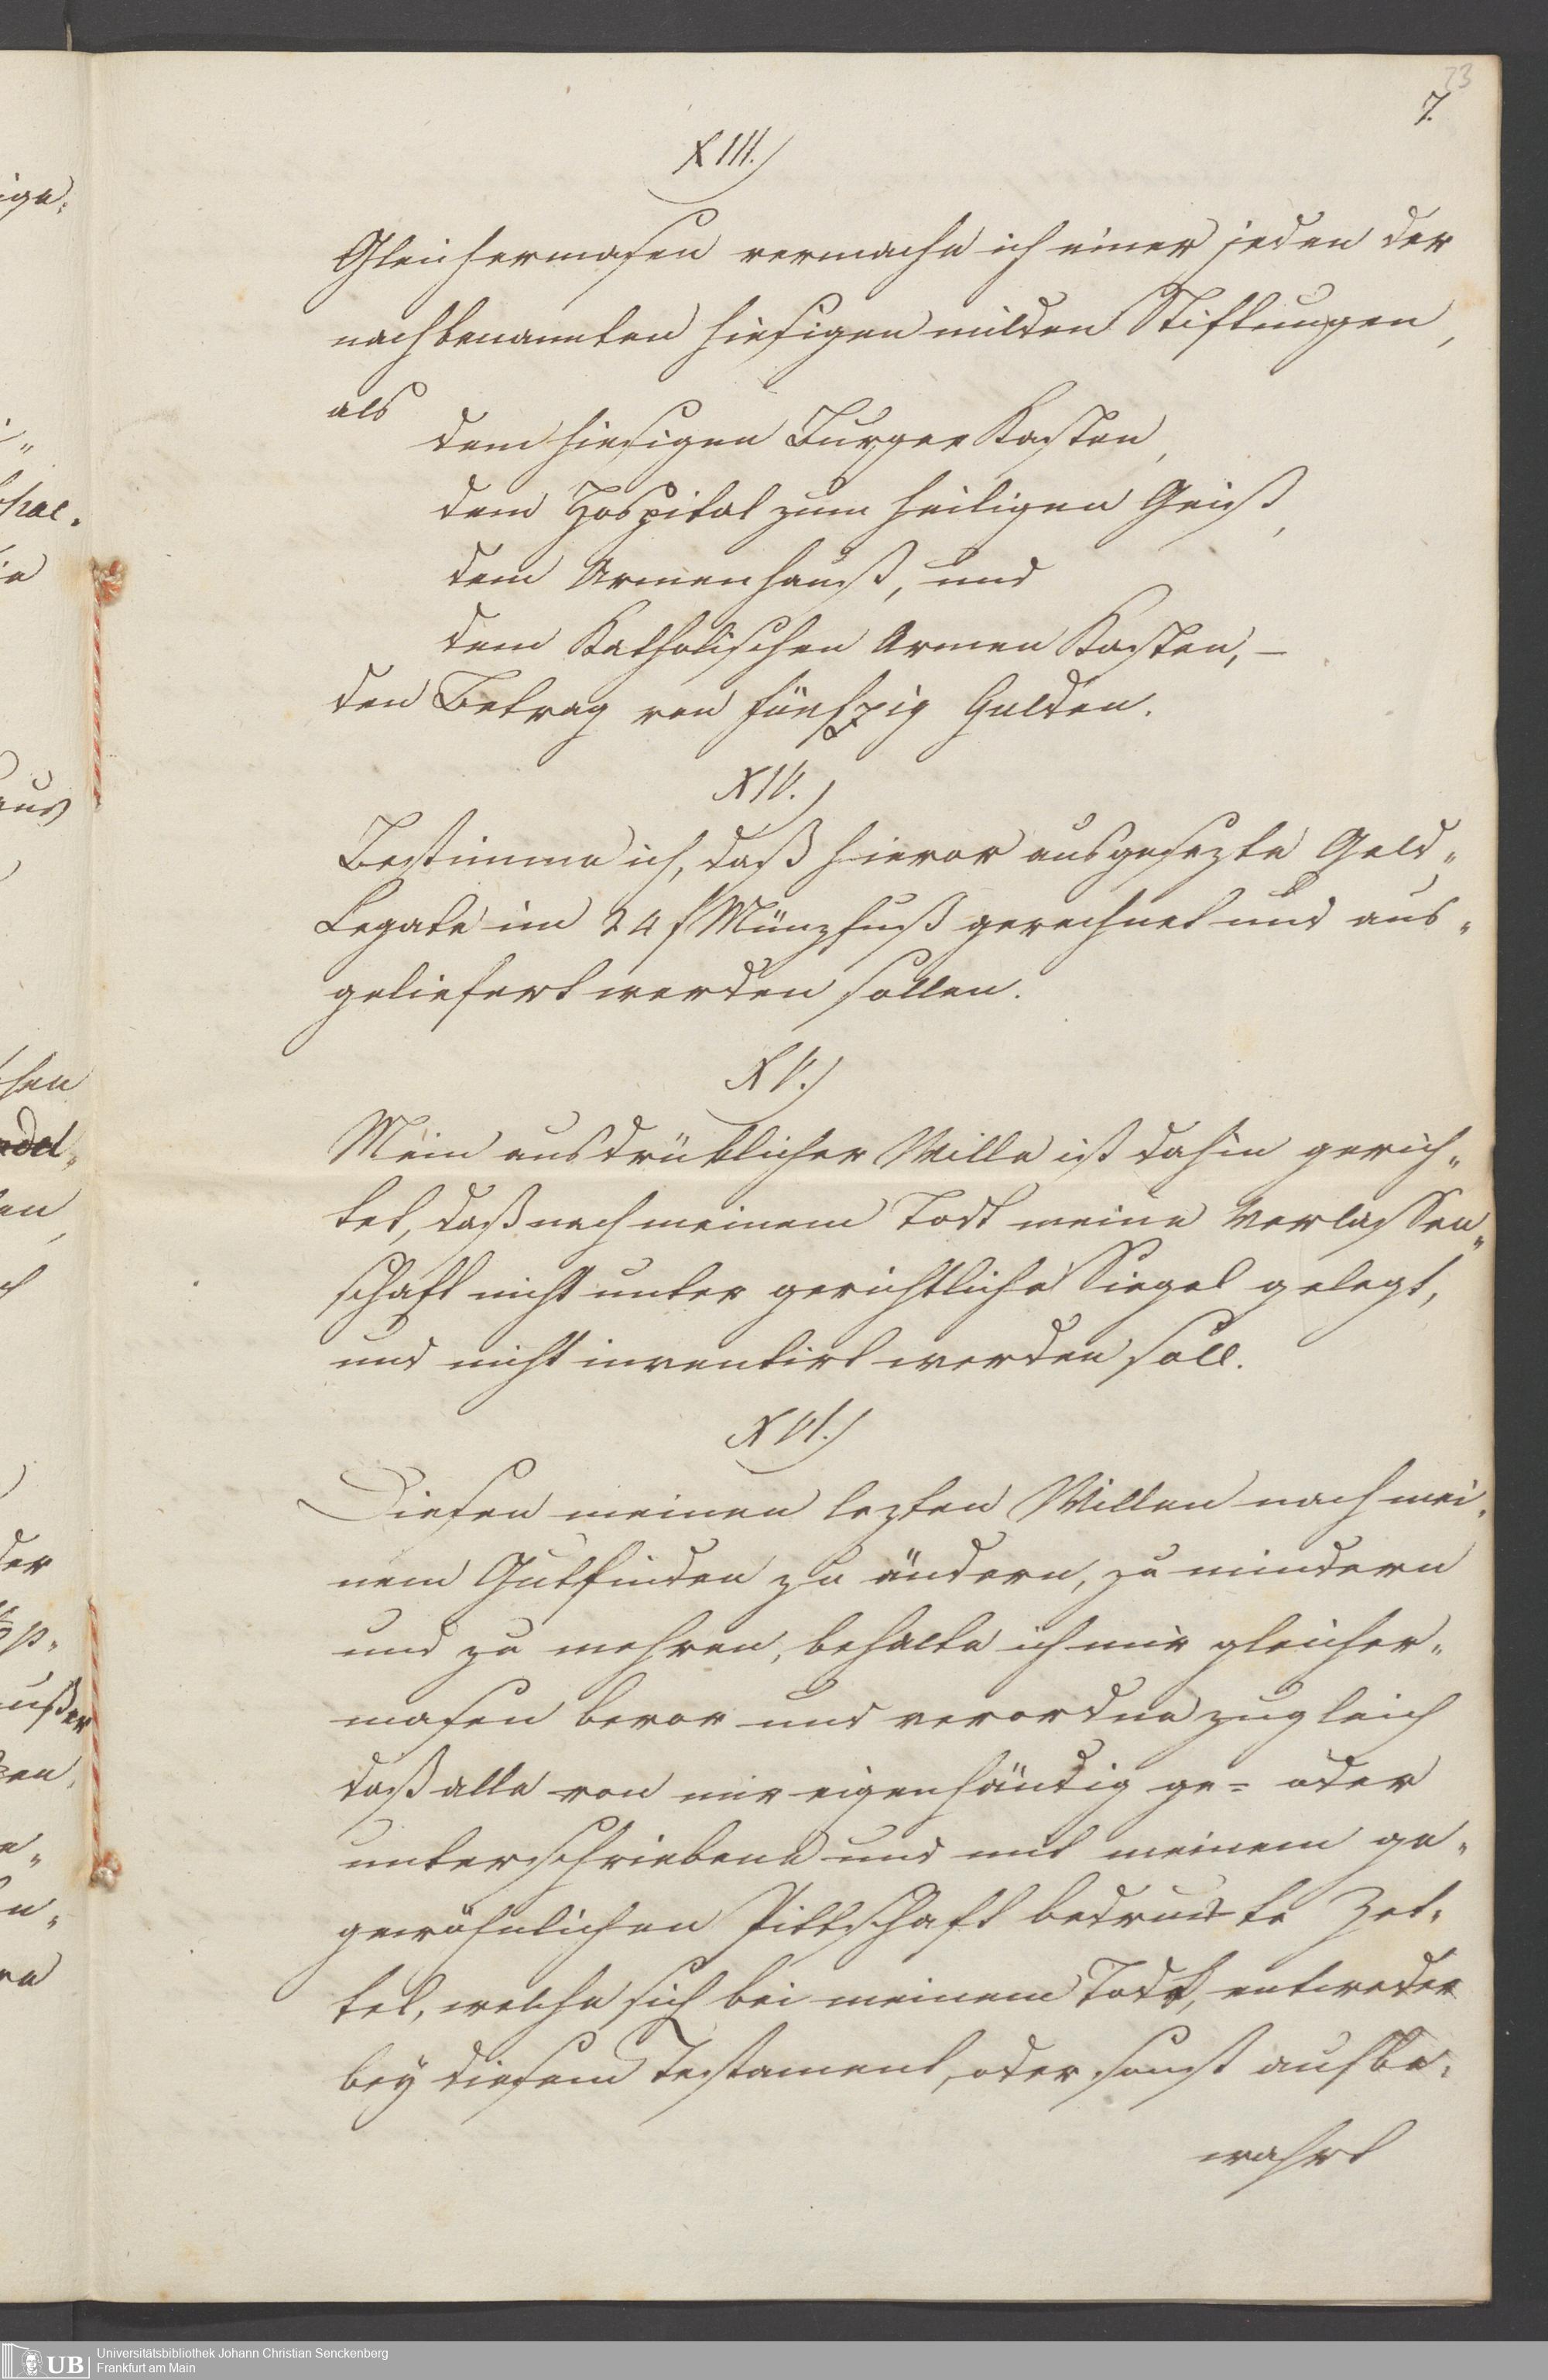 23
7.
XIII.)
Gleichermasen vermache ich einer jeden der
nachbenannten hiesigen milden Stiftungen,
als
dem hiesigen Kasten,
dem Hospital zum heiligen Geist,
dem Armenhauß, und
dem Katholischen Armen Kasten, –
den Betrag von fünfzig Gulden.
XIV.)
Bestimme ich, daß hievor ausgesezte Geld„
Legate im 24 f Münzfuß gerechnet und aus„
geliefert werden sollen.
XV.)
Mein ausdrüklicher Wille ist dahin gerich„
tet, daß nach meinem Todt meine Verlassen„
schaft nicht unter gerichtliche Siegel gelegt,
und nicht inventirt werden soll.
XVI.)
Diesen meinen lezten Willen nach mei„
nem Gutfinden zu ändern, zu mindern
und zu mehren, behalte ich mir gleicher„
masen bevor und verordne zugleich
daß alle von mir eigenhändig ge= oder
unterschriebene und mit meinem ge„
gewöhnlichen Pittschaft bedruckte Zet„
tel, welche sich bei meinem Todt, entweder
bey diesem Testament, oder sonst aufbe„
wahrt
Universitätsbibliothek Johann Christian Senckenberg
Frankfurt am Main
UB